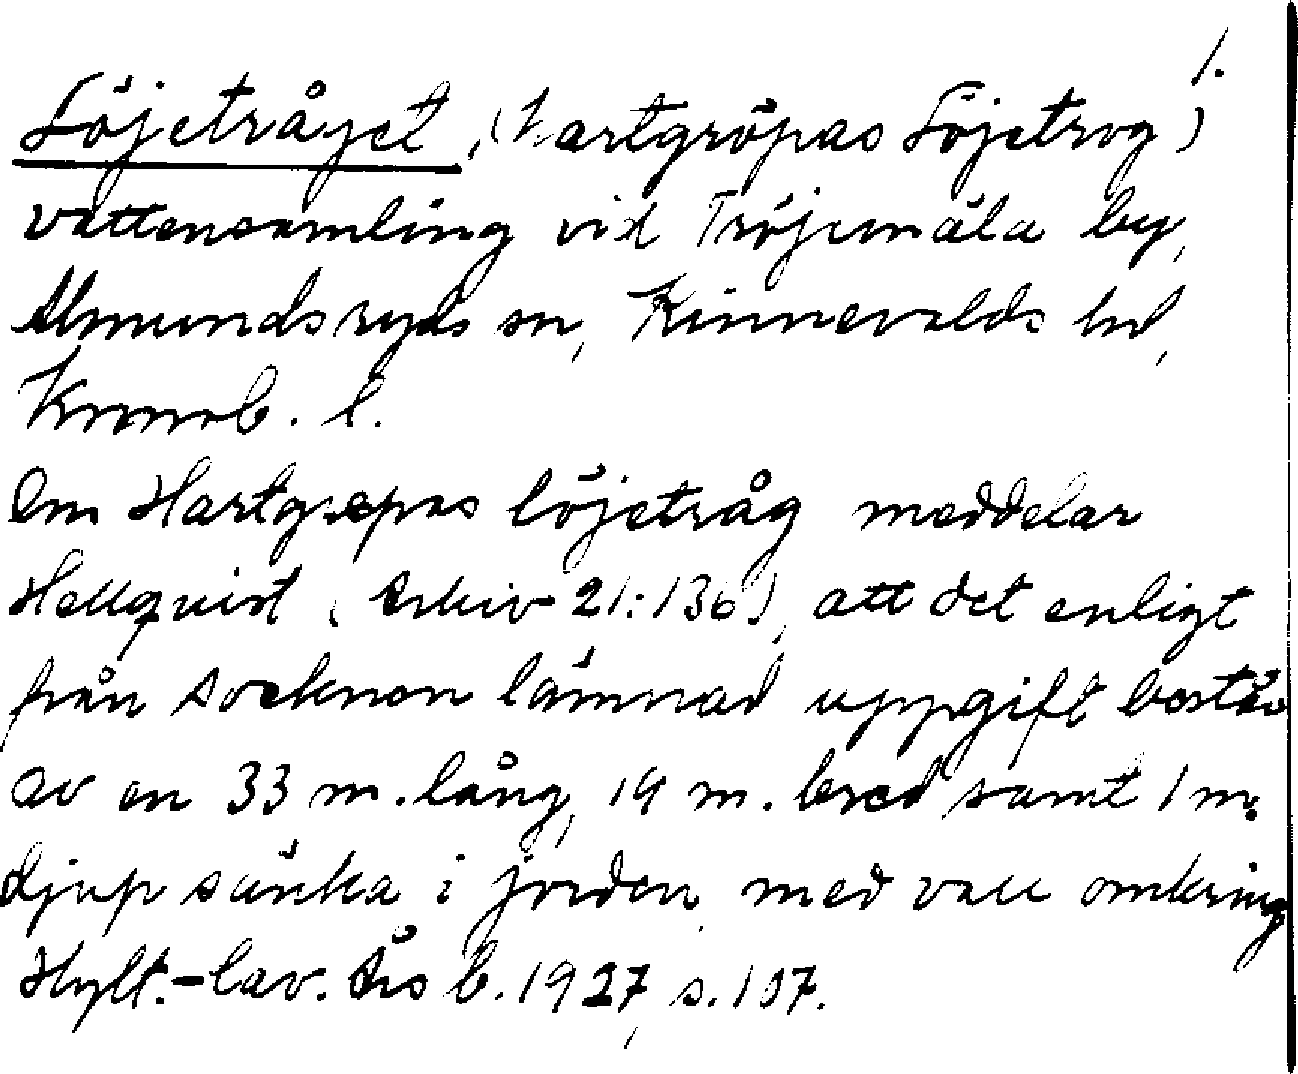 1.
Löjetråget, (Hartgröpas Löjetrog)
vattensamling vid Tröjemåla by,
Almundsryds sn, Kinnevalds hd,
Kronob. l.
Om Hartgrepas löjetråg meddelar
Hellquist (Arkiv 21:136), att det enligt
från socknen lämnad uppgift består
av en 33 m. lång, 19 m. bred samt 1 m.
djup sänka i jorden med vall omkring
Hylt.-Cav. Årsb. 1927, s. 107.